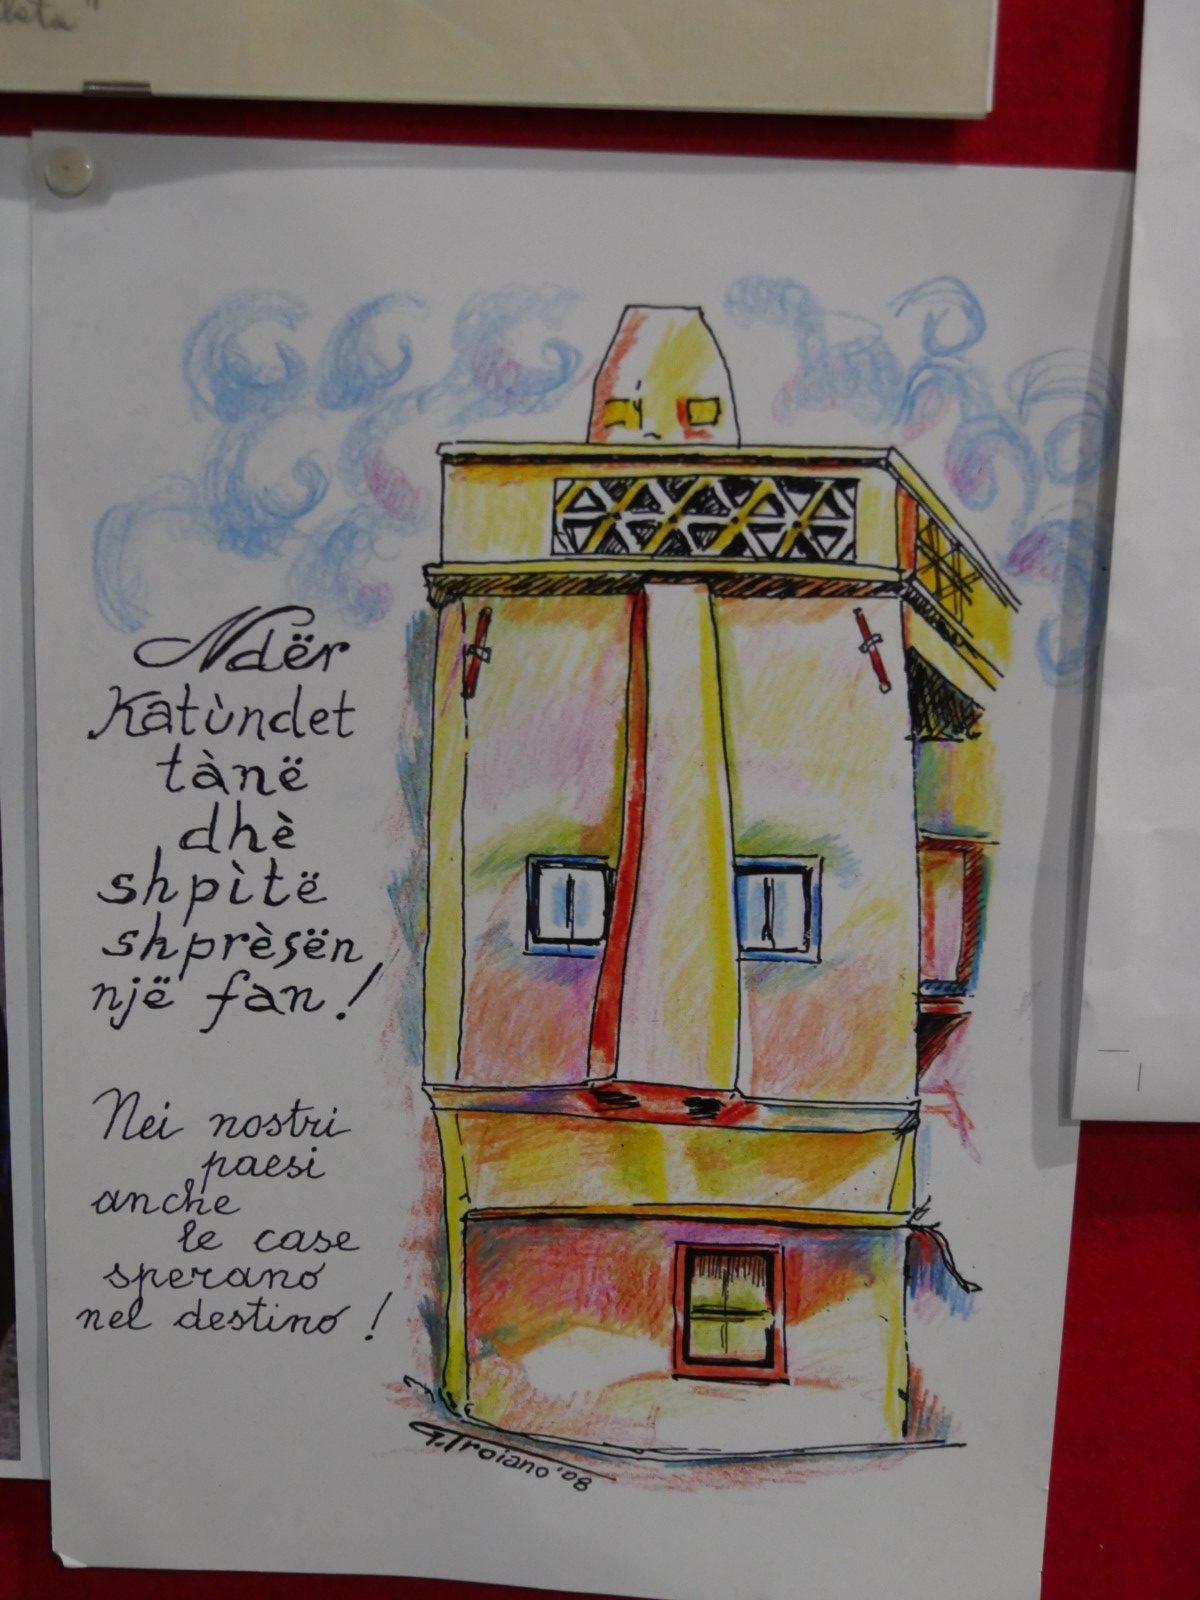 Ndër
Katùndet
tànë
dhè
shpìtë
shprèsën
një fan!
Nei nostri
paesi
anche
le case
sperano
nel destino!
G. Troiano '08